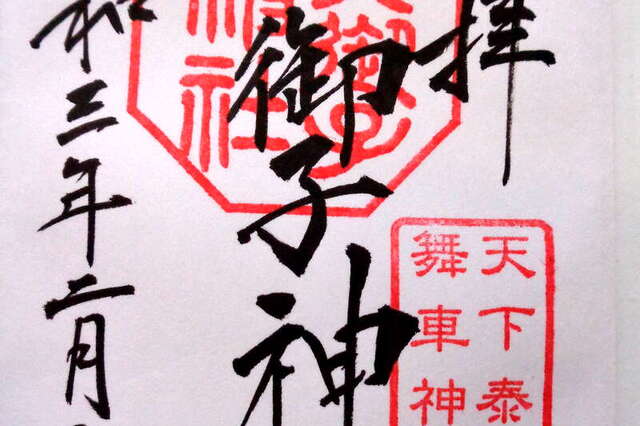 拝
御子神
和三年二月
天下泰
舞車神
神社